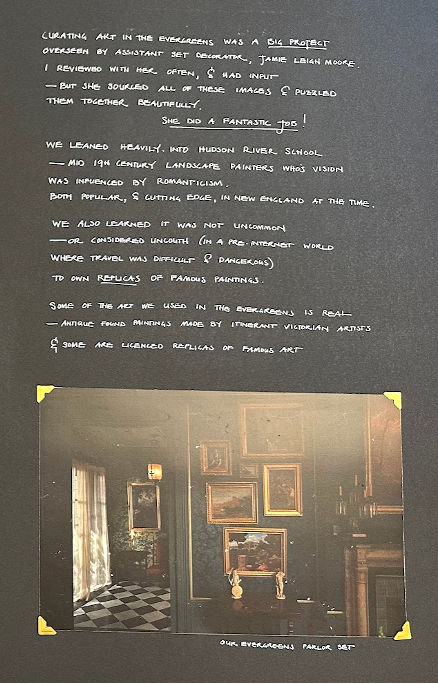 CURATING ART IN THE EVERGREENS WAS A BIG PROJECT
OVERSEEN BY ASSISTANT SET DECORATOR, JAMIE LEIGH MOORE.
I REVIEWED WITH HER OFTEN, & HAD INPUT
— BUT SHE SOURCED ALL OF THESE IMAGES & PUZZLED
THEM TOGETHER BEAUTIFULLY.
SHE DID A FANTASTIC JOB!
WE LEANED HEAVILY INTO HUDSON RIVER SCHOOL
— MID 19TH CENTURY LANDSCAPE PAINTERS WHO'S VISION
WAS INFLUENCED BY ROMANTICISM.
BOTH POPULAR, & CUTTING EDGE, IN NEW ENGLAND AT THE TIME.
WE ALSO LEARNED IT WAS NOT UNCOMMON
— OR CONSIDERED UNCOUTH (IN A PRE-INTERNET WORLD
WHERE TRAVEL WAS DIFFICULT & DANGEROUS)
TO OWN REPLICAS OF FAMOUS PAINTINGS.
SOME OF THE ART WE USED IN THE EVERGREENS IS REAL
— ANTIQUE FOUND PAINTINGS MADE BY ITINERANT VICTORIAN ARTISTS
& SOME ARE LICENCED REPLICAS OF FAMOUS ART
OUR EVERGREENS PARLOR SET